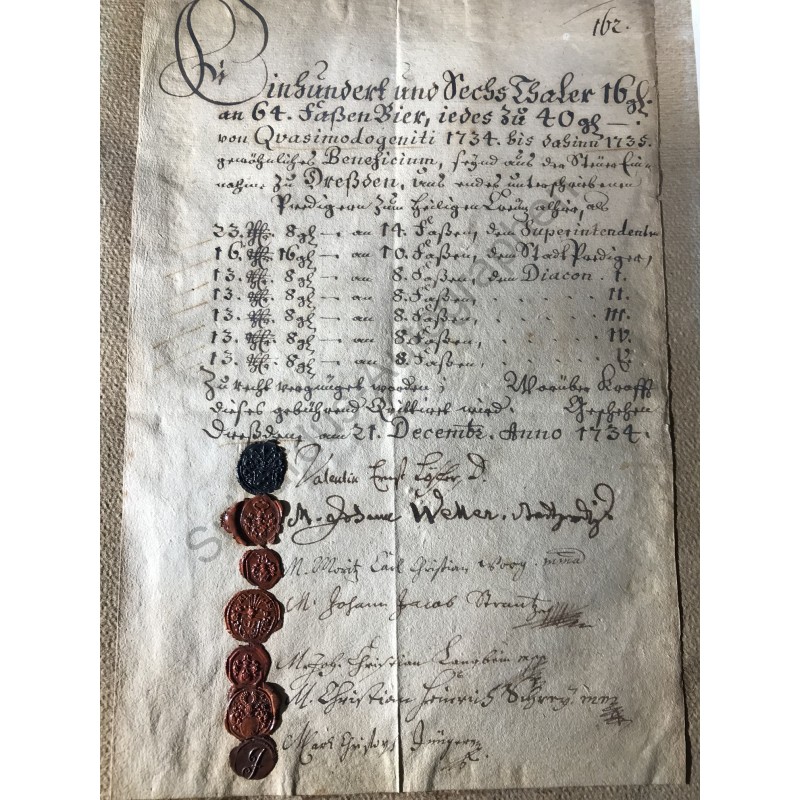 162.
Einhundert und Sechs Thaler 16 gl.
an 64. Faßen Bier, iedes zu 40 gl —
von Qvasimodogeniti 1734. bis dahin 1735.
gewöhnliches Beneficium, seynd aus der Steuer Ein-
nahme zu Dreßden, uns endes unterschriebenen
Predigern zum heiligen Creuz alhier, als
23. Thl. 8 gl — an 14. Faßen, dem Superintendenten
16. Thl. 16 gl — an 10. Faßen, dem Stadt Prediger,
13. Thl. 8 gl — an 8. Faßen, dem Diacon. I.
13. Thl. 8 gl — an 8. Faßen, . . . . . II.
13. Thl. 8 gl — an 8. Faßen, . . . . . III.
13. Thl. 8 gl — an 8. Faßen, . . . . . IV.
13. Thl. 8 gl — an 8. Faßen, . . . . . V.
Zu recht vergnüget worden; Worüber Krafft
dieses gebührend Qvittiret wird. Geschehen
Dreßden, am 21. Decembr. Anno 1734.
Valentin Ernst Löscher, D.
M. Johann Weller, Stadtprediger
M. Moritz Carl Christian Woog. mpria
M. Johann Jacob Strantz
M. Joh. Christian Langbein mpp
M. Christian Heinrich Schrey. mpp
J